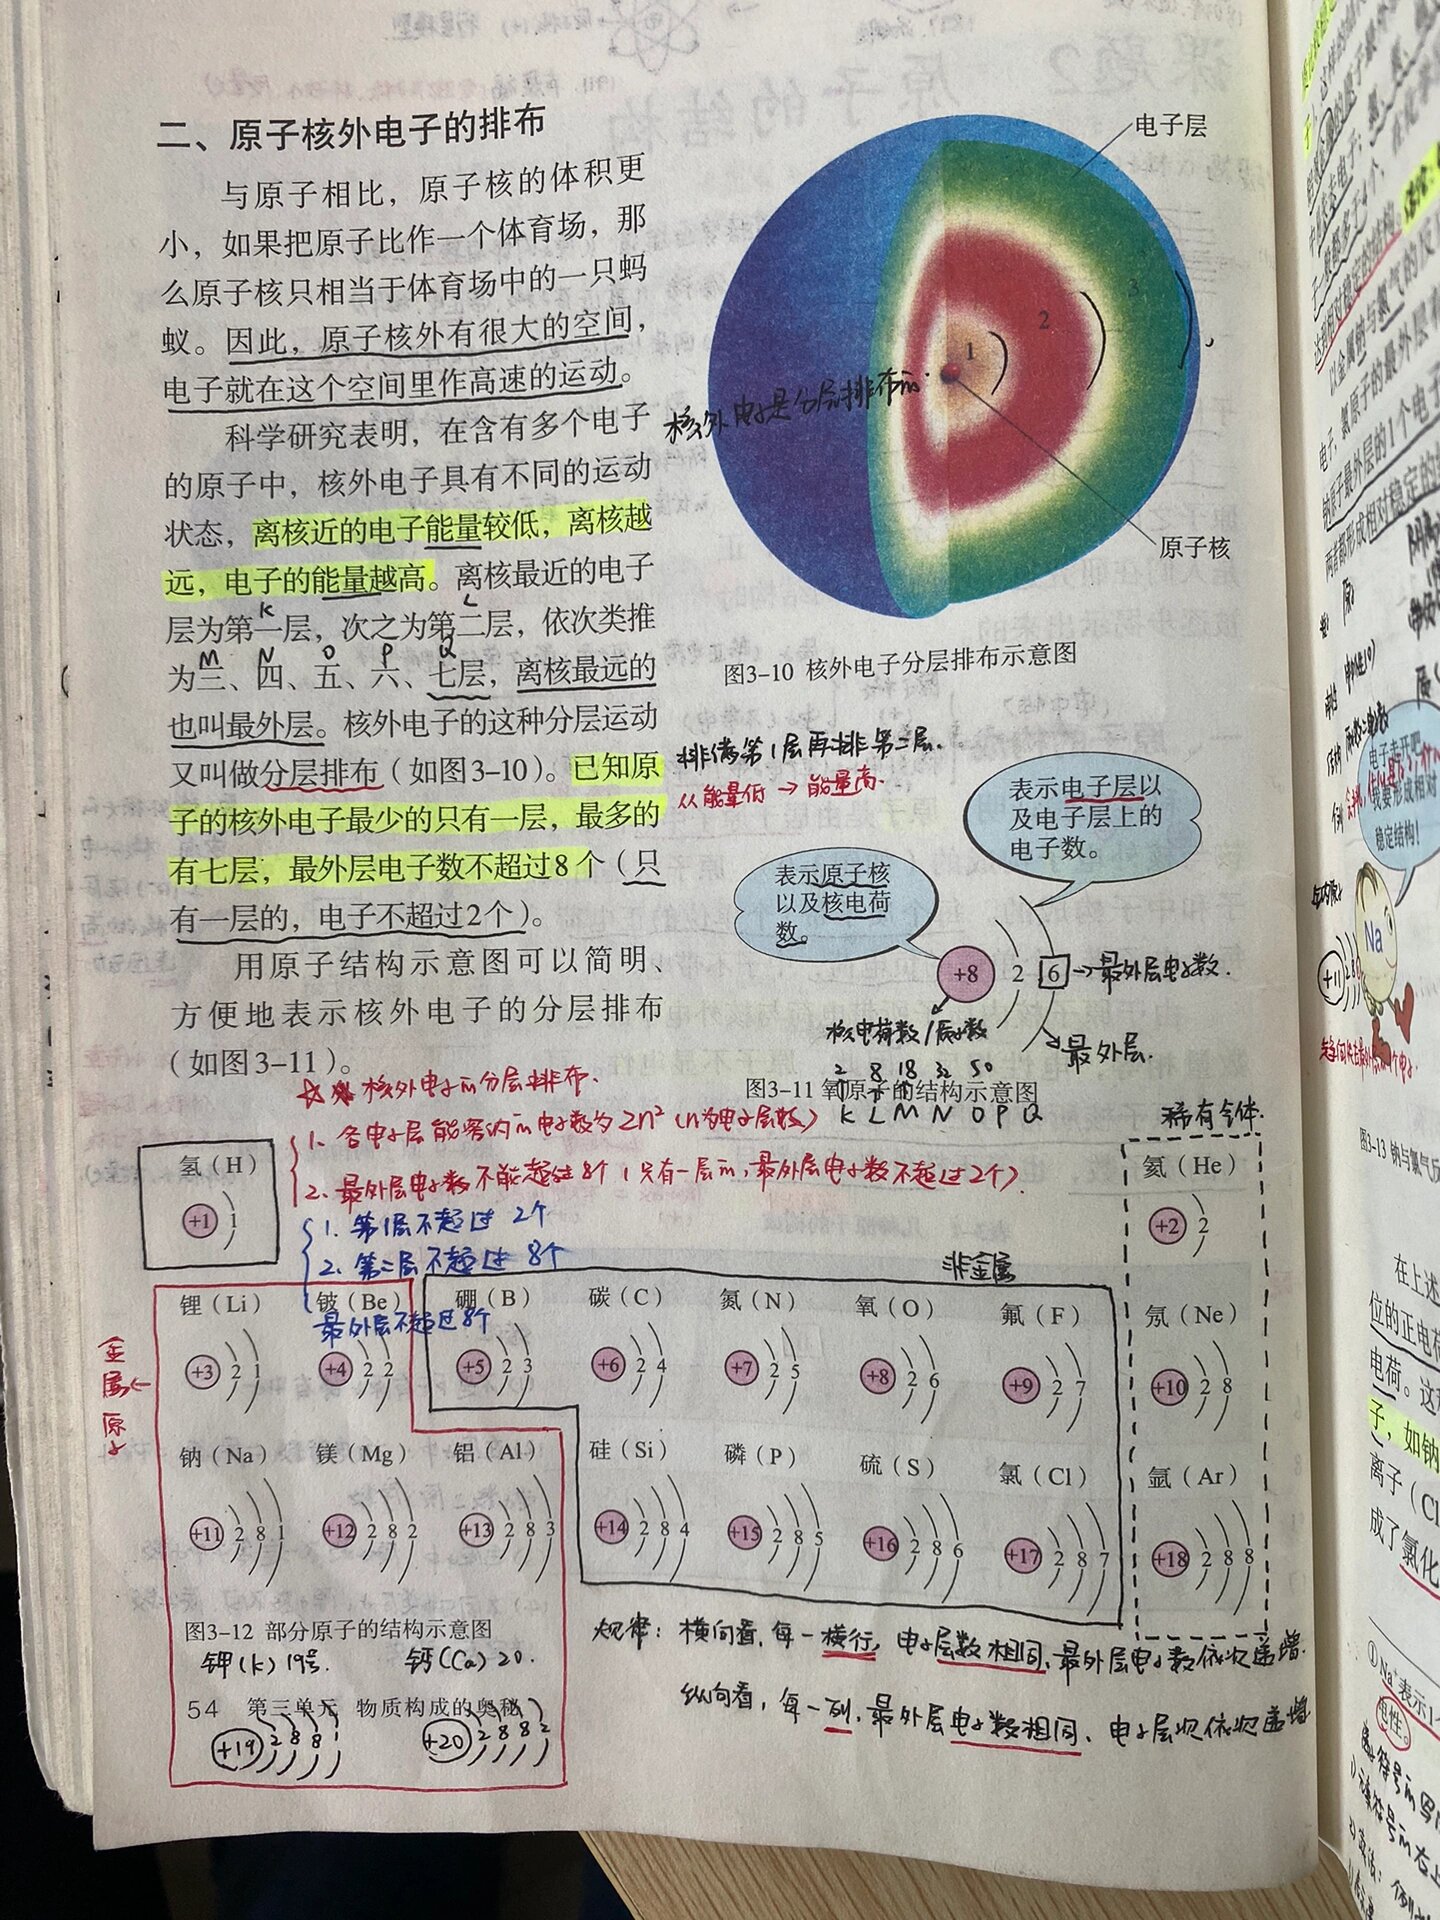 二、原子核外电子的排布
与原子相比，原子核的体积更
小，如果把原子比作一个体育场，那
么原子核只相当于体育场中的一只蚂
蚁。因此，原子核外有很大的空间，
电子就在这个空间里作高速的运动。
科学研究表明，在含有多个电子
的原子中，核外电子具有不同的运动
状态，离核近的电子能量较低，离核越
远，电子的能量越高。离核最近的电子
K L
层为第一层，次之为第二层，依次类推
M N O P Q
为三、四、五、六、七层，离核最远的
也叫最外层。核外电子的这种分层运动
又叫做分层排布（如图3-10）。已知原
子的核外电子最少的只有一层，最多的
有七层，最外层电子数不超过8个（只
有一层的，电子不超过2个）。
用原子结构示意图可以简明、
方便地表示核外电子的分层排布
（如图3-11）。
电子层
1 2 3
核外电子是分层排布的.
原子核
图3-10 核外电子分层排布示意图
排满第1层再排第二层.
从能量低→能量高.
表示电子层以
及电子层上的
电子数。
表示原子核
以及核电荷
数。
+8 2 6 →最外层电子数.
核电荷数/质子数
最外层.
2 8 18 32 50
图3-11 氧原子的结构示意图
K L M N O P Q
核外电子的分层排布.
1. 各电子层能容纳的电子数为2n² (n为电子层数)
2. 最外层电子数不能超过8个(只有一层的,最外层电子数不超过2个).
1. 第1层不超过2个
2. 第二层不超过8个
最外层不超过8个
稀有气体.
非金属
金属原子
氢（H）
+1 1
氦（He）
+2 2
锂（Li） 铍（Be） 硼（B） 碳（C） 氮（N） 氧（O） 氟（F） 氖（Ne）
+3 2 1 +4 2 2 +5 2 3 +6 2 4 +7 2 5 +8 2 6 +9 2 7 +10 2 8
钠（Na） 镁（Mg） 铝（Al） 硅（Si） 磷（P） 硫（S） 氯（Cl） 氩（Ar）
+11 2 8 1 +12 2 8 2 +13 2 8 3 +14 2 8 4 +15 2 8 5 +16 2 8 6 +17 2 8 7 +18 2 8 8
图3-12 部分原子的结构示意图
钾(K) 19号. 钙(Ca) 20.
54 第三单元 物质构成的奥秘
+19 2 8 8 1 +20 2 8 8 2
规律: 横向看,每一横行,电子层数相同,最外层电子数依次递增.
纵向看,每一列,最外层电子数相同、电子层次依次递增
电子走开吧，
我要形成相对
稳定结构！
Na
+11 2 8
图3-13 钠与氯气反
在上述
位的正电荷
电荷。这
子，如钠
离子（Cl
成了氯化
①Na⁺表示1
电性。